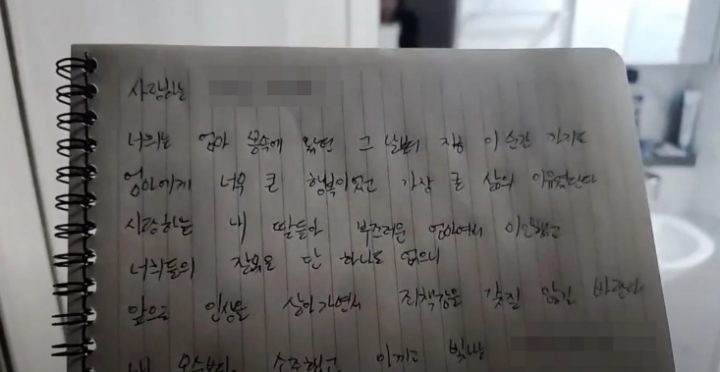 사랑하는
너희는 엄마 뱃속에 있던 그 날부터 지금 이 순간 까지도
엄마에게 너무 큰 행복이었고 가장 큰 삶의 이유였단다
사랑하는 내 딸들아 부끄러운 엄마여서 미안했고
너희들의 잘못은 단 하나도 없으니
앞으로 인생을 살아가면서 죄책감을 갖질 않길 바란다
내 소중하고 아끼고